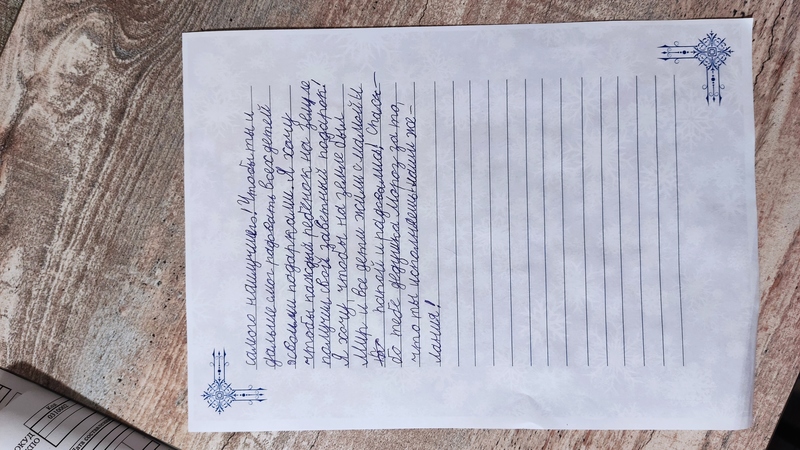 самого наилучшего! Чтобы ты и
дальше смог радовать всех детей
своими подарками. Я хочу
чтобы каждый ребёнок на земле
получил свой заветный подарок!
Я хочу чтобы на земле был
Мир и все дети жили с мамой и
папой и радовались! Спаси-
бо тебе дедушка мороз за то,
что ты исполняешь наши же-
лания!
ОКУД